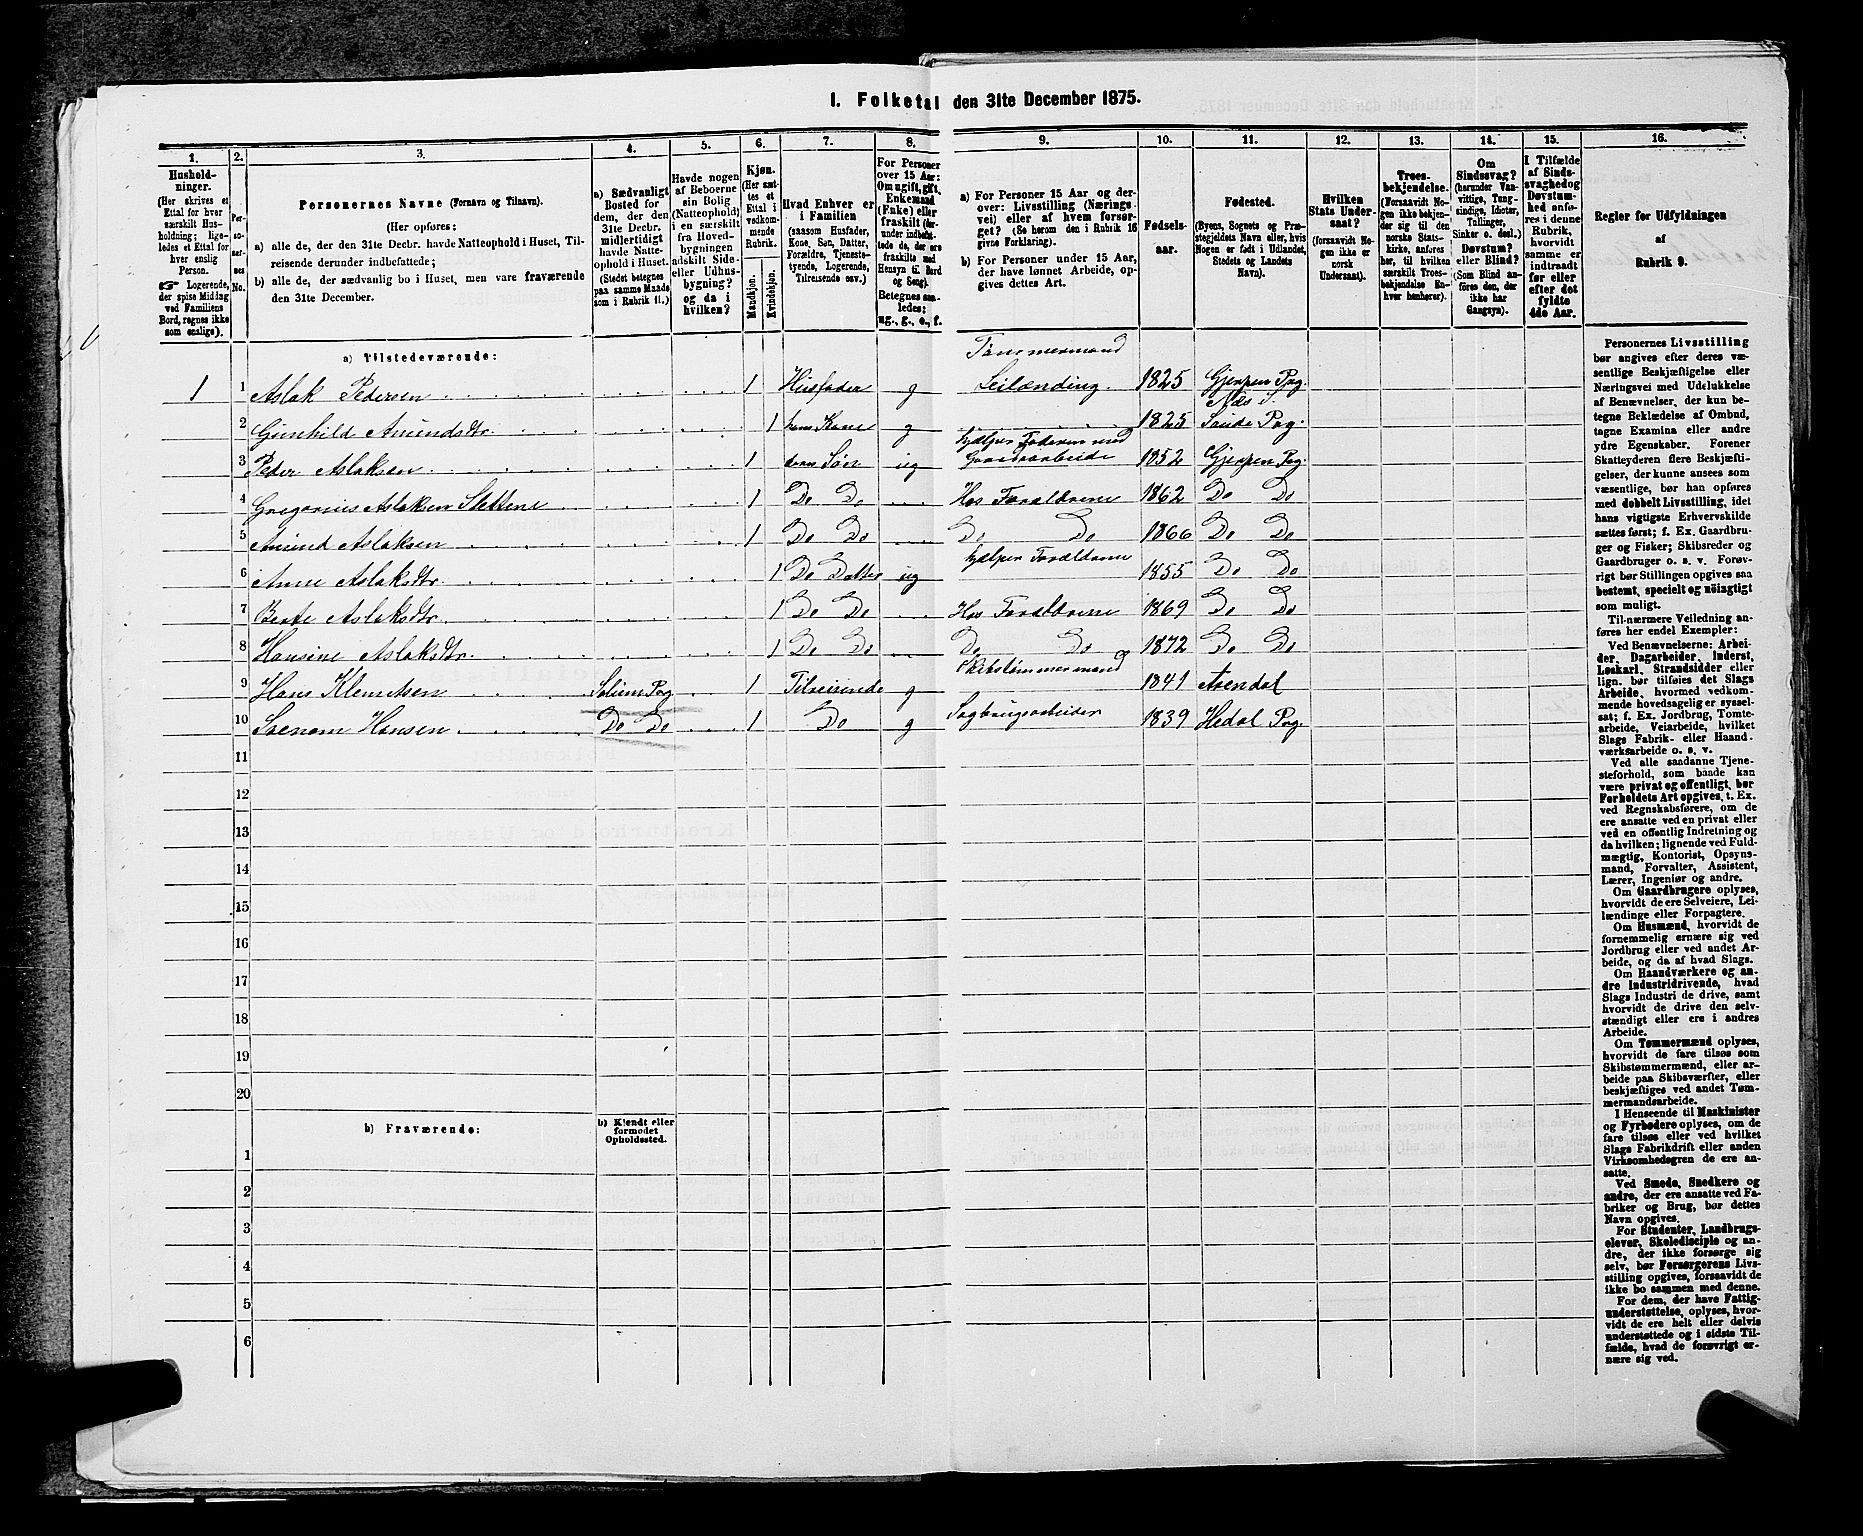 I. Folketal den 31te December 1875.
1. 2. 3. 4. 5. 6. 7. 8. 9. 10. 11. 12. 13. 14. 15. 16.
Husholdninger.
(Her skrives et
Ettal for hver
særskilt Husholdning;
ligeledes et Ettal for
hver enslig
Person.
Logerende,
der spise Middag
ved Familiens
Bord, regnes ikke
som enslige).
Personernes No.
Personernes Navne (Fornavn og Tilnavn).
(Her opføres:
a) alle de, der den 31te Decbr. havde Natteophold i Huset, Tilreisende derunder indbefattede;
b) alle de, der sædvanlig bo i Huset, men vare fraværende
den 31te December.
a) Sædvanligt
Bosted for
dem, der den
31te Decbr.
midlertidigt
havde Natteophold i Huset.
(Stedet betegnes
paa samme Maade
som i Rubrik 11.)
Havde nogen
af Beboerne
sin Bolig
(Natteophold)
i en særskilt
fra Hovedbygningen
adskilt Side- eller Udhusbygning?
og da i
hvilken?
Kjøn.
(Her sættes
et Ettal i
vedkommende
Rubrik.
Mandkjøn.
Kvindekjøn.
Hvad Enhver er
i Familien
(saasom Husfader,
Kone, Søn, Datter,
Forældre, Tjenestetyende, Logerende,
Tilreisende osv.)
For Personer
over 15 Aar:
Om ugift, gift,
Enkemand
(Enke) eller
fraskilt (derunder indbefattede de, der ere
fraskilte med
Hensyn til Bord
og Seng).
Betegnes saaledes:
ug., g., e., f.
a) For Personer 15 Aar og derover: Livsstilling (Næringsvei) eller af hvem forsørget? (Se herom den i Rubrik 16
givne Forklaring).
b) For Personer under 15 Aar,
der have lønnet Arbeide, opgives dettes Art.
Fødselsaar.
Fødested.
(Byens, Sognets og Præstegjeldets Navn eller, hvis
Nogen er født i Udlandet,
Stedets og Landets
Navn).
Hvilken
Stats Undersaat?
(forsaavidt Nogen ikke er
norsk
Undersaat).
Troesbekjendelse.
(Forsaavidt Nogen ikke bekjender sig til den
norske Statskirke, anføres
her, til hvilken
særskilt Troesbekjendelse Enhver henhører).
Om
Sindssvag?
(herunder Vanvittige, Tungsindige, Idioter,
Tullinger,
Sinker o. desl.).
Døvstum?
eller Blind?
(Som Blind anføres den, der
ikke har
Gangsyn).
I Tilfælde
af Sindssvaghed og
Døvstumhed anføres i denne
Rubrik,
hvorvidt
samme er
indtraadt
før eller
efter det
fyldte
4de Aar.
Regler for Udfyldningen
af
Rubrik 9.
a) Tilstedeværende:
Tømmermand
1 1 Aslak Pedersen 1 Husfader g Leilænding. 1825 Gjerpen Pg.
Næs S.
2 Gunhild Amundsdtr. 1 hans Kone g 1825 Saude Pg.
hjælper Faderen med
3 Peder Aslaksen 1 deres Søn ug Gaardsarbeide 1852 Gjerpen Pg.
4 Gregorius Aslaksen Slettene 1 Do Do Hos Forældrene 1862 Do Do
5 Amund Aslaksen 1 Do Do Do Do 1866 Do Do
hjælper Forældrene
6 Anne Aslaksdtr. 1 Do Datter ug 1855 Do Do
7 Berte Aslaksdtr. 1 Do Do Hos Forældrene 1869 Do Do
8 Hansine Aslaksdtr. 1 Do Do Do Do 1872 Do Do
Skibstømmermand
9 Hans Klemetsen Solum Pg 1 Tilreisende g 1841 Arendal
10 Svenom Hansen Do Do 1 Do g Sagbrugsarbeider 1839 Hedal Pg.
11
12
13
14
15
16
17
18
19
20
b) Fraværende:
b) Kjendt eller
formodet
Opholdssted.
1
2
3
4
5
6
Personernes Livsstilling
bør angives efter deres væsentlige Beskjæftigelse eller
Næringsvei med Udelukkelse
af Benævnelser, der kun betegne Beklædelse af Ombud,
tagne Examina eller andre
ydre Egenskaber. Forener
Skatteyderen flere Beskjæftigelser, der kunne ansees som
væsentlige, bør han opføres
med dobbelt Livsstilling, idet
hans vigtigste Erhvervskilde
sættes først; f. Ex. Gaardbruger og Fisker; Skibsreder og
Gaardbruger o. s. v. Forøvrigt bør Stillingen opgives saa
bestemt, specielt og nøiagtigt
som muligt.
Til nærmere Veiledning anføres her endel Exempler:
Ved Benævnelserne: Arbeider, Dagarbeider, Inderst,
Løskarl, Strandsidder eller
lign. bør tilføies det Slags
Arbeide, hvormed vedkommende hovedsagelig er sysselsat; f. Ex. Jordbrug, Tomtearbeide, Veiarbeide, hvilket
Slags Fabrik- eller Haandværksarbeide o. s. v.
Ved alle saadanne Tjenesteforhold, som baade kan
være privat og offentligt, bør
Forholdets Art opgives, t. Ex.
ved Regnskabsførere, om de
ere ansatte ved en privat eller
ved en offentlig Indretning og
da hvilken; lignende ved Fuldmægtig, Kontorist, Opsynsmand, Forvalter, Assistent,
Lærer, Ingeniør og andre.
Om Gaardbrugere oplyses,
hvorvidt de ere Selveiere, Leilændinge eller Forpagtere.
Om Husmænd, hvorvidt de
fornemmelig ernære sig ved
Jordbrug eller ved andet Arbeide, og da af hvad Slags.
Om Haandværkere og andre Industridrivende, hvad
Slags Industri de drive, samt
hvorvidt de drive den selvstændigt eller ere i andres
Arbeide.
Om Tømmermænd oplyses,
hvorvidt de fare tilsøs som
Skibstømmermænd, eller arbeide paa Skibsværfter, eller
beskjæftiges ved andet Tømmermandsarbeide.
I Henseende til Maskinister
og Fyrbødere oplyses, om de
fare tilsøs eller ved hvilket
Slags Fabrikdrift eller anden
Virksomhedsgren de ere ansatte.
Ved Smede, Snedkere og
andre, der ere ansatte ved Fabriker og Brug, bør dettes
Navn opgives.
For Studenter, Landbrugselever, Skoledisciple og andre, der ikke forsørge sig
selv, bør Forsørgerens Livsstilling opgives, forsaavidt de
ikke bo sammen med denne.
For dem, der have Fattigunderstøttelse, oplyses, hvorvidt de ere helt eller delvis
understøttede og i sidste Tilfælde, hvad de forøvrigt ernære sig ved.